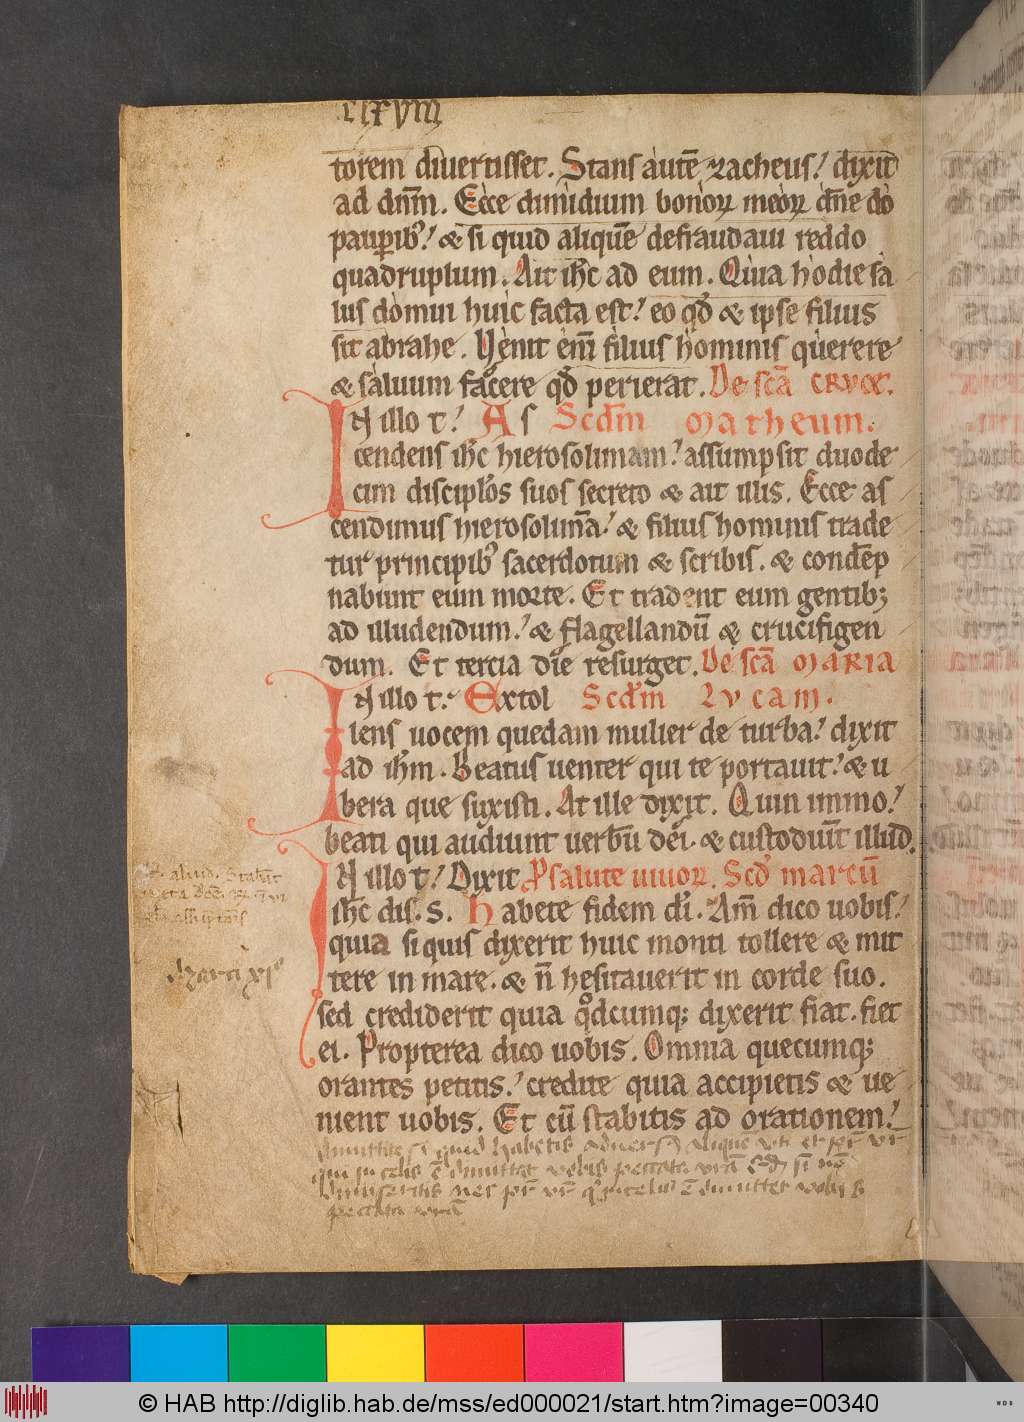 clxviii
torem diuertisset. Stans autē zacheus! dixit
ad dn̄m. Ecce dimidium bonoꝝ meoꝝ dn̄e do
paup̄ibꝰ! & si quid aliquē defraudaui reddo
quadruplum. Ait ih̄c ad eum. Quia hodie sa
lus domui huic facta est! eo qd̄ & ipse filius
sit abrahe. Uenit em̄ filius hominis querere
& saluum facere qd̄ perierat. De sc̄a cruce.
IN illo t! As Scd̄m Matheum.
cendens ih̄c hierosolimam! assumpsit duode
cim discipl̄os suos secreto & ait illis. Ecce as
cendimus hierosolimā! & filius hominis trade
tur principibꝰ sacerdotum & scribis. & condēp
nabunt eum morte. Et tradent eum gentibꝫ
ad illudendum! & flagellandū & crucifigen
dum. Et tercia die resurget. De sc̄a MARIA
IN illo t. Extol Scd̄m Lucam.
lens uocem quedam mulier de turba! dixit
ad ih̄m. Beatus uenter qui te portauit! & u
bera que suxisti. At ille dixit. Quin immo!
beati qui audiunt uerbū dei. & custodiūt illud.
IN illo t! Dixit P salute uiuoꝝ. Scd̄ marcū
ih̄c dis. s. Habete fidem di. Am̄ dico uobis!
quia si quis dixerit huic monti tollere & mit
tere in mare. & n̄ hesitauerit in corde suo.
sed crediderit quia qd̄cumqꝫ dixerit fiat. fiet
ei. Propterea dico uobis. Omnia quecumqꝫ
orantes petitis! credite quia accipietis & ue
nient uobis. Et cū stabitis ad orationem!
dimittite si quid habetis aduersū aliquē vt et pr̄ vr̄
qui in celis ē dimittat vobis peccata vrā Qd̄ si nō
dimiseritis nec pr̄ vr̄ q in celis ē dimittet vobis
peccata vrā
aliud. Stabāt
marci xiº
© HAB http://diglib.hab.de/mss/ed000021/start.htm?image=00340